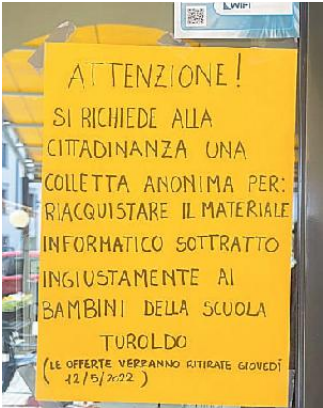 WIFI
ATTENZIONE!
SI RICHIEDE ALLA
CITTADINANZA UNA
COLLETTA ANONIMA PER:
RIACQUISTARE IL MATERIALE
INFORMATICO SOTTRATTO
INGIUSTAMENTE AI
BAMBINI DELLA SCUOLA
TUROLDO
(LE OFFERTE VERRANNO RITIRATE GIOVEDÌ
12/5/2022)